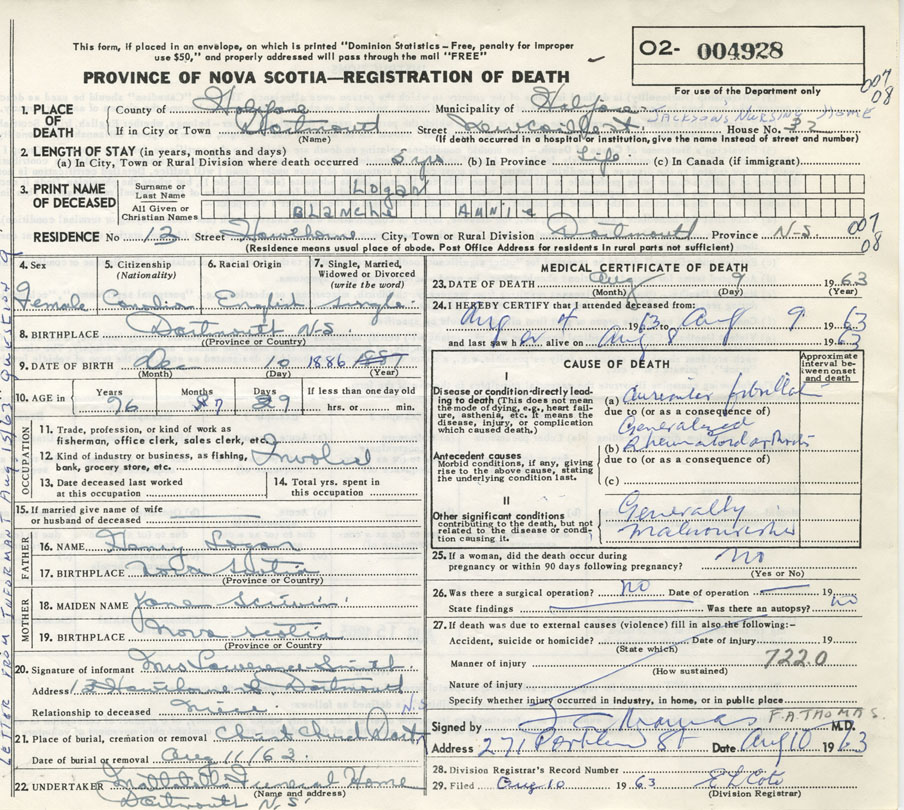 This form, if placed in an envelope, on which is printed "Dominion Statistics – Free, penalty for improper
use $50," and properly addressed will pass through the mail "FREE"
O2- 004928
For use of the Department only
PROVINCE OF NOVA SCOTIA—REGISTRATION OF DEATH
007
08
1. PLACE OF DEATH
County of Halifax Municipality of Halifax
Jacksons Nursing Home
If in City or Town Dartmouth Street Newcastle St. House No. 32
(Name) (If death occurred in a hospital or institution, give the name instead of street and number)
2. LENGTH OF STAY (in years, months and days)
(a) In City, Town or Rural Division where death occurred 5 yrs (b) In Province Life (c) In Canada (if immigrant)
3. PRINT NAME OF DECEASED
Surname or Last Name LOGAN
All Given or Christian Names BLANCHE ANNIE
RESIDENCE No 13 Street Hawthorne City, Town or Rural Division Dartmouth Province N-S
007
08
(Residence means usual place of abode. Post Office Address for residents in rural parts not sufficient)
4. Sex 5. Citizenship (Nationality) 6. Racial Origin 7. Single, Married, Widowed or Divorced (write the word)
Female Canadian English Single
8. BIRTHPLACE Dartmouth N-S.
(Province or Country)
9. DATE OF BIRTH Dec 10 1886
(Month) (Day) (Year)
10. AGE in Years Months Days If less than one day old
76 7 29 hrs. or min.
OCCUPATION
11. Trade, profession, or kind of work as fisherman, office clerk, sales clerk, etc.
12. Kind of industry or business, as fishing, bank, grocery store, etc. Invalid
13. Date deceased last worked at this occupation
14. Total yrs. spent in this occupation
15. If married give name of wife or husband of deceased
FATHER
16. NAME Harvey Logan
17. BIRTHPLACE Nova Scotia
(Province or Country)
MOTHER
18. MAIDEN NAME Jane
19. BIRTHPLACE Nova Scotia
(Province or Country)
20. Signature of informant Mrs Lawrence Smith
Address 13 Hawthorne St Dartmouth
N.S.
Relationship to deceased niece
21. Place of burial, cremation or removal Christ Church Dart
Date of burial or removal Aug 11/63
22. UNDERTAKER Funeral Home
(Name and address)
Dartmouth N.S.
LETTER FROM INFORMANT Aug 15/63 QUESTION 9
MEDICAL CERTIFICATE OF DEATH
23. DATE OF DEATH Aug 9 1963
(Month) (Day) (Year)
24. I HEREBY CERTIFY that I attended deceased from:
Aug 4 1963 to Aug 9 1963
and last saw her alive on Aug 8 1963
CAUSE OF DEATH
Approximate interval between onset and death
I
Disease or condition directly leading to death (This does not mean the mode of dying, e.g., heart failure, asthenia, etc. It means the disease, injury, or complication which caused death.)
(a) Auricular fibrillation
due to (or as a consequence of)
Generalized
(b) Rheumatoid arthritis
due to (or as a consequence of)
Antecedent causes
Morbid conditions, if any, giving rise to the above cause, stating the underlying condition last.
(c)
II
Other significant conditions
contributing to the death, but not related to the disease or condition causing it.
Generally
Malnourished
25. If a woman, did the death occur during pregnancy or within 90 days following pregnancy? No
(Yes or No)
26. Was there a surgical operation? no Date of operation 19
State findings Was there an autopsy? no
27. If death was due to external causes (violence) fill in also the following:-
Accident, suicide or homicide? Date of injury 19
(State which)
Manner of injury 722.0
(How sustained)
Nature of injury
Specify whether injury occurred in industry, in home, or in public place
Signed by F A Thomas F.A. THOMAS. M.D.
Address 271 Portland St Date Aug 10 1963
28. Division Registrar's Record Number
29. Filed Aug 10 1963
(Division Registrar)